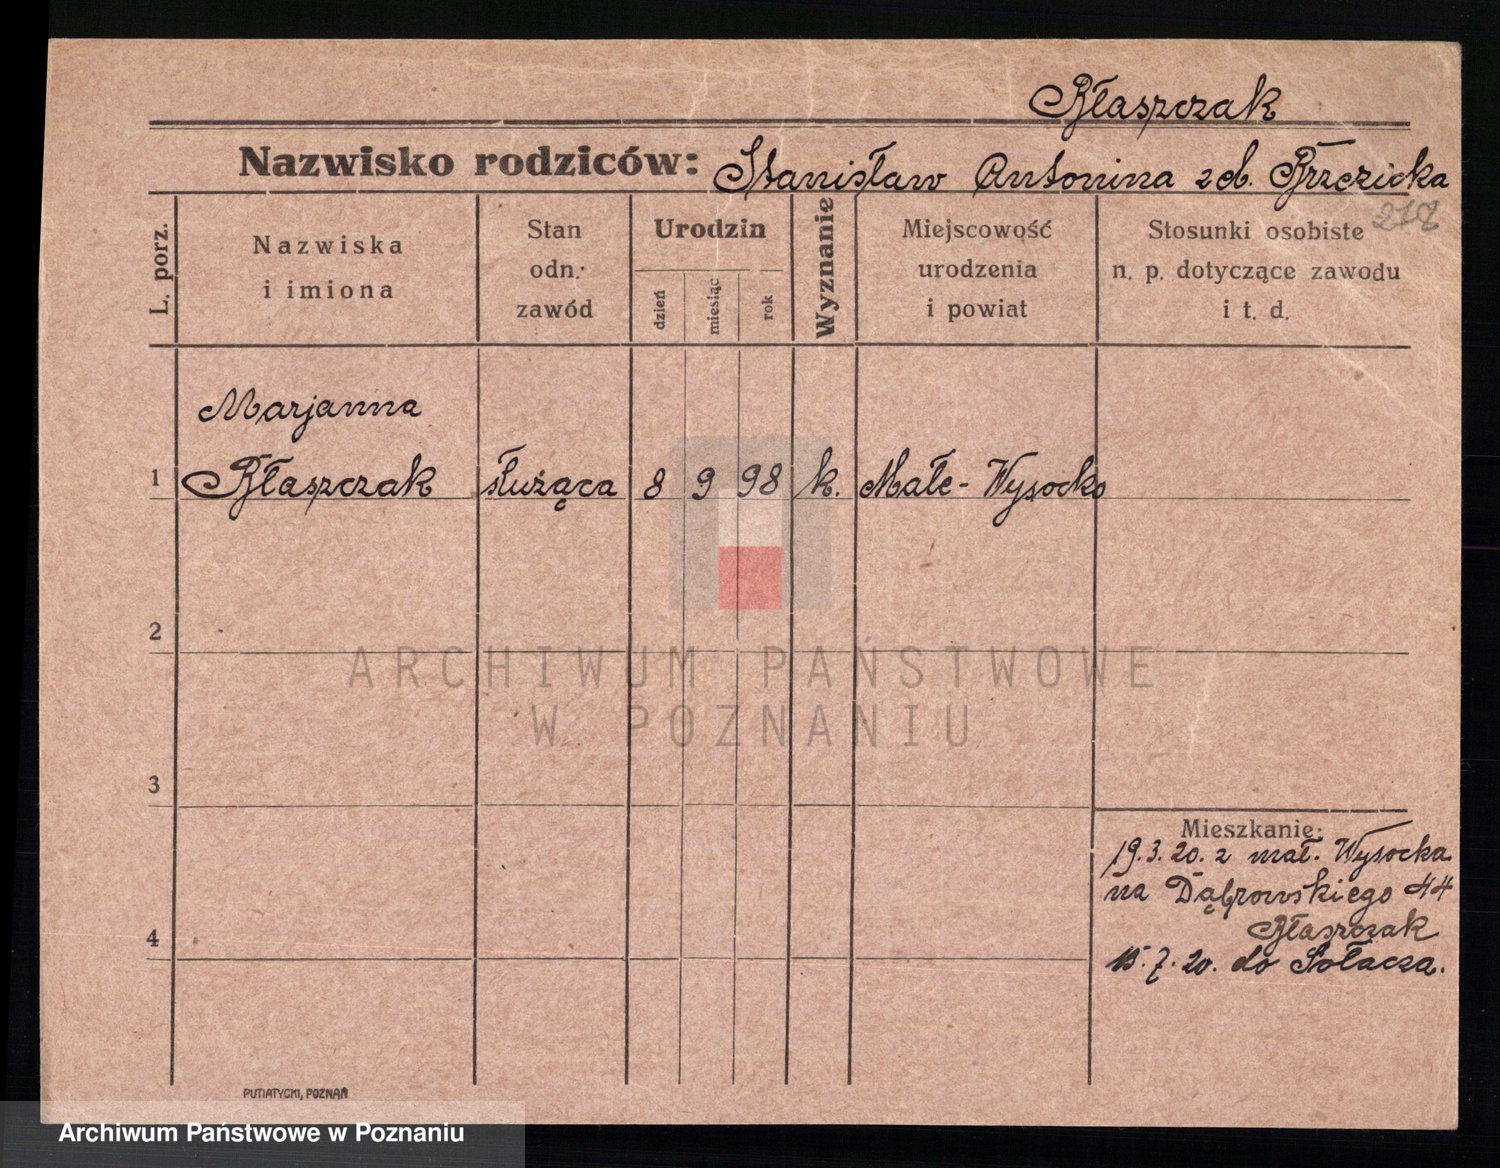 Błaszczak
Nazwisko rodziców: Stanisław Antonina z d. Brzezicka
L. porz.
Nazwiska
i imiona
Stan
odn.
zawód
Urodzin
dzień
miesiąc
rok
Wyznanie
Miejscowość
urodzenia
i powiat
Stosunki osobiste
n. p. dotyczące zawodu
i t. d.
Marjanna
1 Błaszczak służąca 8 9 98 k. Małe-Wysocko
2
ARCHIWUM PAŃSTWOWE
W POZNANIU
3
Mieszkanie:
19.3.20. z mał. Wysocka
na Dąbrowskiego 44
Błaszczak
4
15.7.20. do Sołacza.
PUTIATYCKI, POZNAŃ
Archiwum Państwowe w Poznaniu